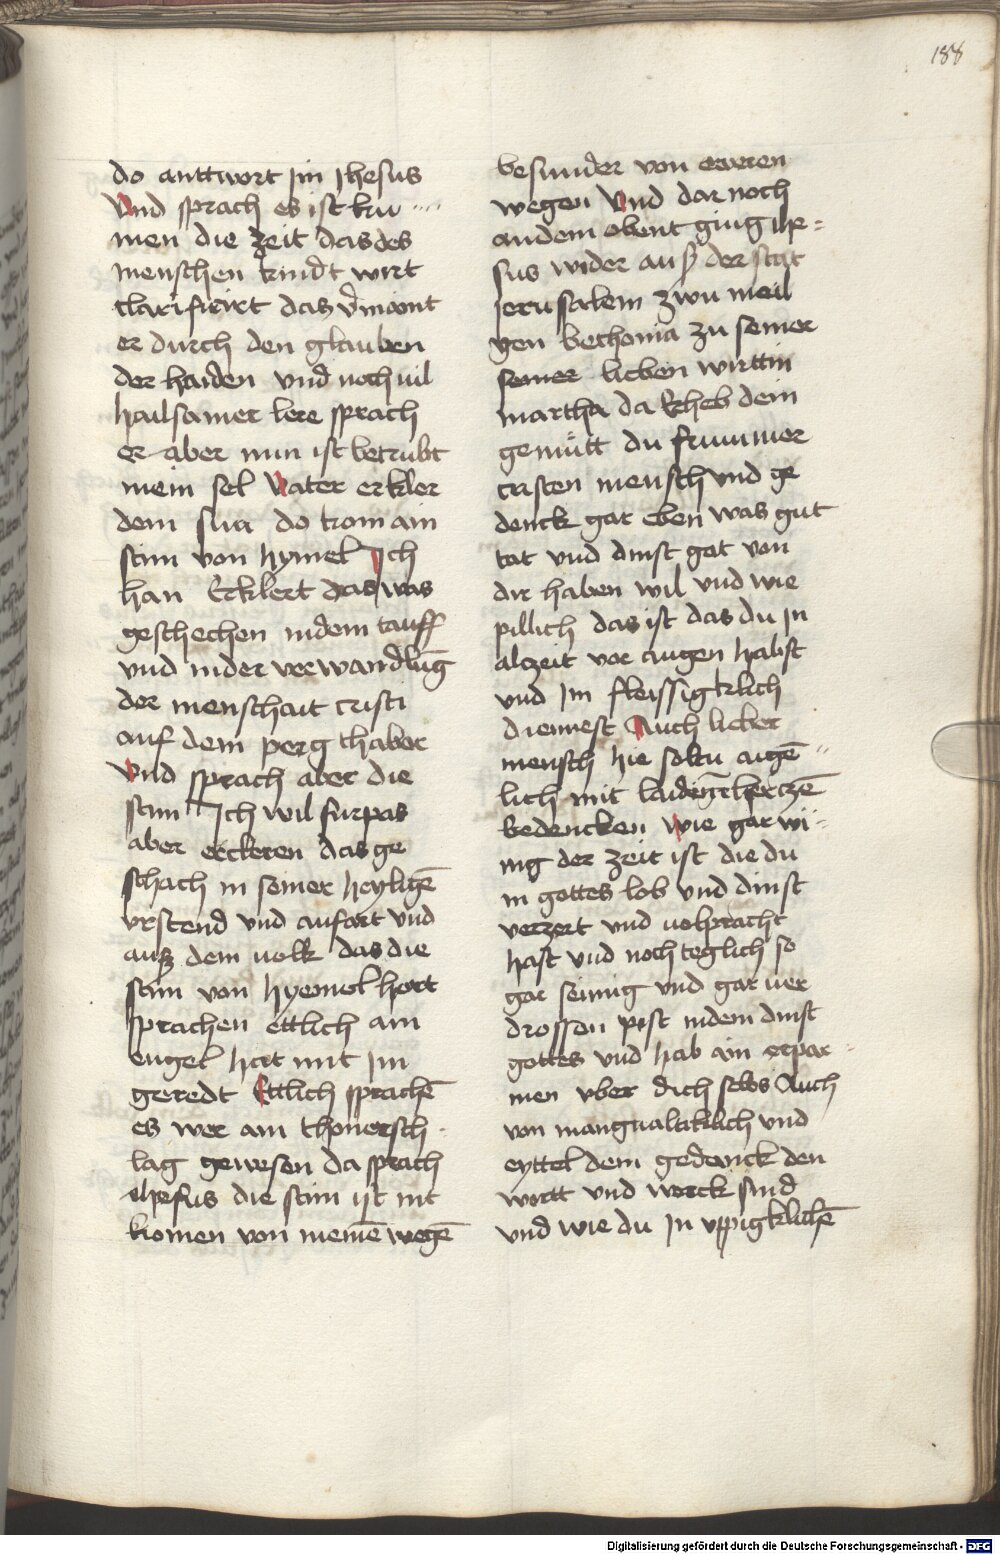 188
do anttwort im Jhesus
Vnd sprach es ist ku
men die zeit das des
menschen kindt wirt
clarifitirt das vermaint
er durch den glauben
der haiden vnd noch uil
hailsamer lere sprach
er aber nun ist betrubt
mein sel Vater erkler
dein sun do kom ain
stim von hymel Ich
han Erklert das was
geschechen indem tauff
vnd inder verwandlūg
der menschait cristi
auf dem perg thabor
Vnd sprach aber die
stim Ich wil furpas
aber erckleren das ge
schach in seiner heyligē
vrstend vnd aufart vnd
ausz dem uolk das die
stim von hyemel hort
sprachen ettlich ain
engel hat mit im
geredt Ettlich sprachē
es wer ain thonersch
lag gewesen da sprach
ihesus die stim ist nit
komen von meinē wegē
besunder von eweren
wegen Vnd dar noch
andem obent ging ihe=
sus wider ausz der stat
Jerusalem zwu meil
gen bethonia zu seiner
seiner lieben wirttin
martha da Erheb dein
gemütt du frummer
cristen mensch vnd ge
denck gar eben was gut
tat vnd dinst got von
dir haben wil vnd wie
pillich das ist das du in
alczeit vor augen habst
vnd im fleissigklich
diennest Auch lieber
mensch hie soltu aigē=
lich mit laidigē herczē
bedencken Wie gar wi=
nig der zeit ist die du
in gottes lob vnd dinst
verzert vnd uolpracht
hast vnd noch teglich so
gar seinig vnd gar uer
drossen pist indem dinst
gottes vnd hab ain erpar
men vber dich selbs Auch
von mangualtiklich vnd
eyttel dein gedenck den
wortt vnd werck sind
vnd wie du in vppigklichē
Digitalisierung gefördert durch die Deutsche Forschungsgemeinschaft - DFG